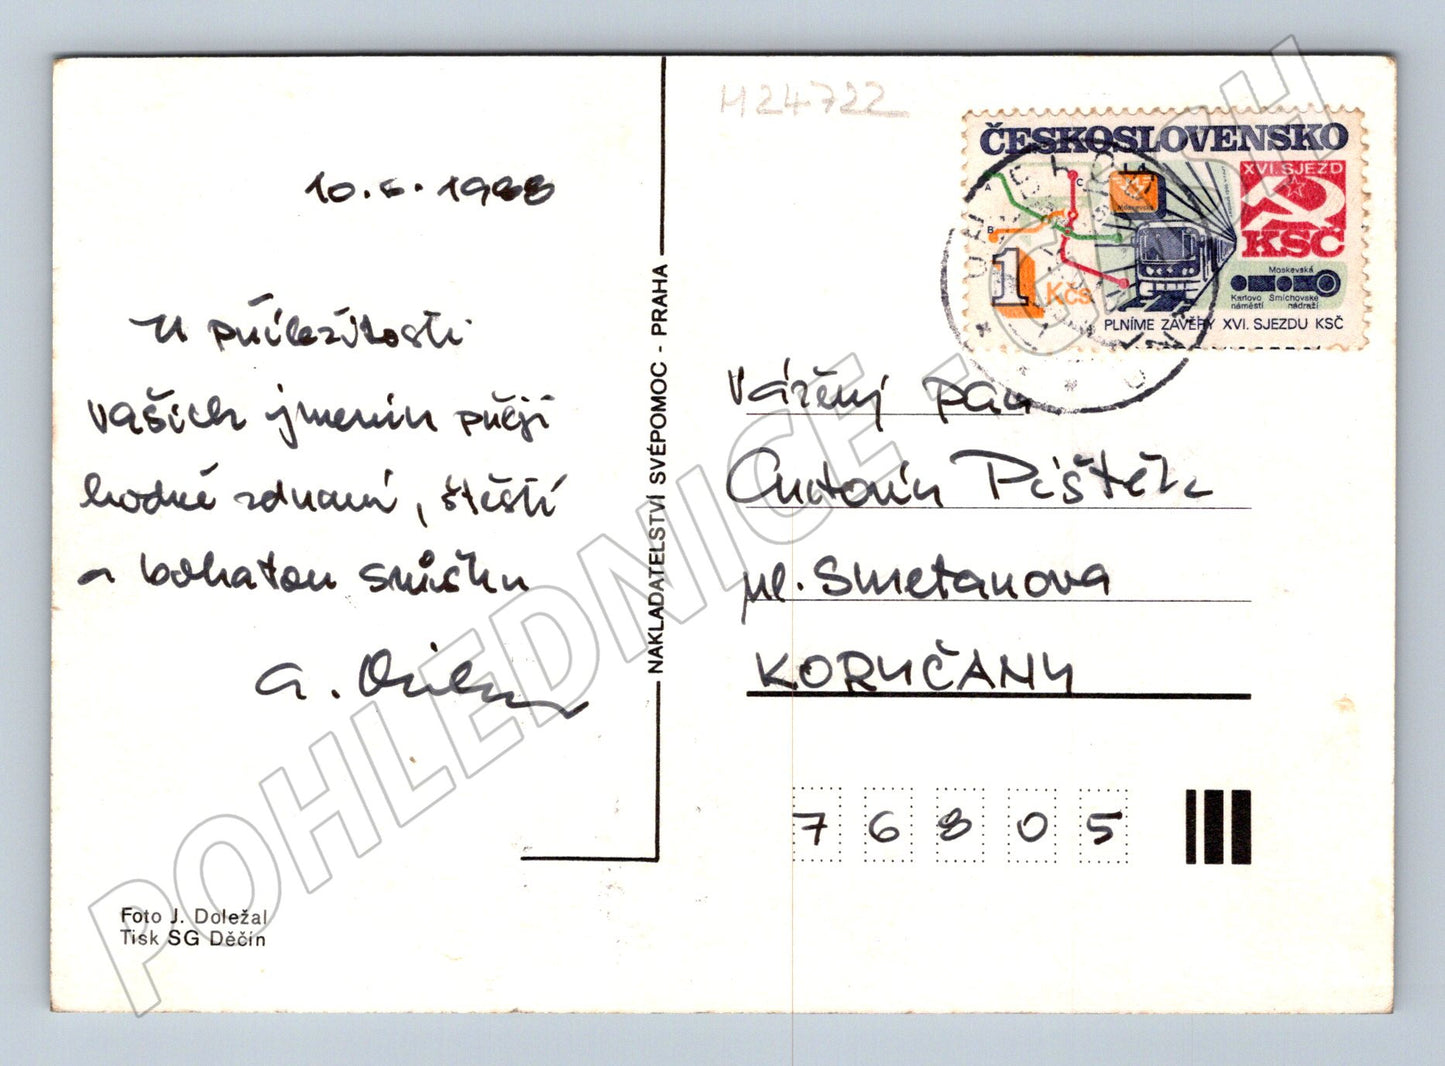 H24722
10.6.1988
U příležitosti
vašich jmenin přeji
hodně zdraví, štěstí
a bohatou snůšku
a.
NAKLADATELSTVÍ SVÉPOMOC - PRAHA
Foto J. Doležal
Tisk SG Děčín
ČESKOSLOVENSKO
XVI. SJEZD
KSČ
A
B
C
Moskevská
1 Kčs
Moskevská
Karlovo náměstí
Smíchovské nádraží
PLNÍME ZÁVĚRY XVI. SJEZDU KSČ
Vážený pan
Antonín Pištěk
ul. Smetanova
KORYČANY
76805
POHLEDNICE - CASH